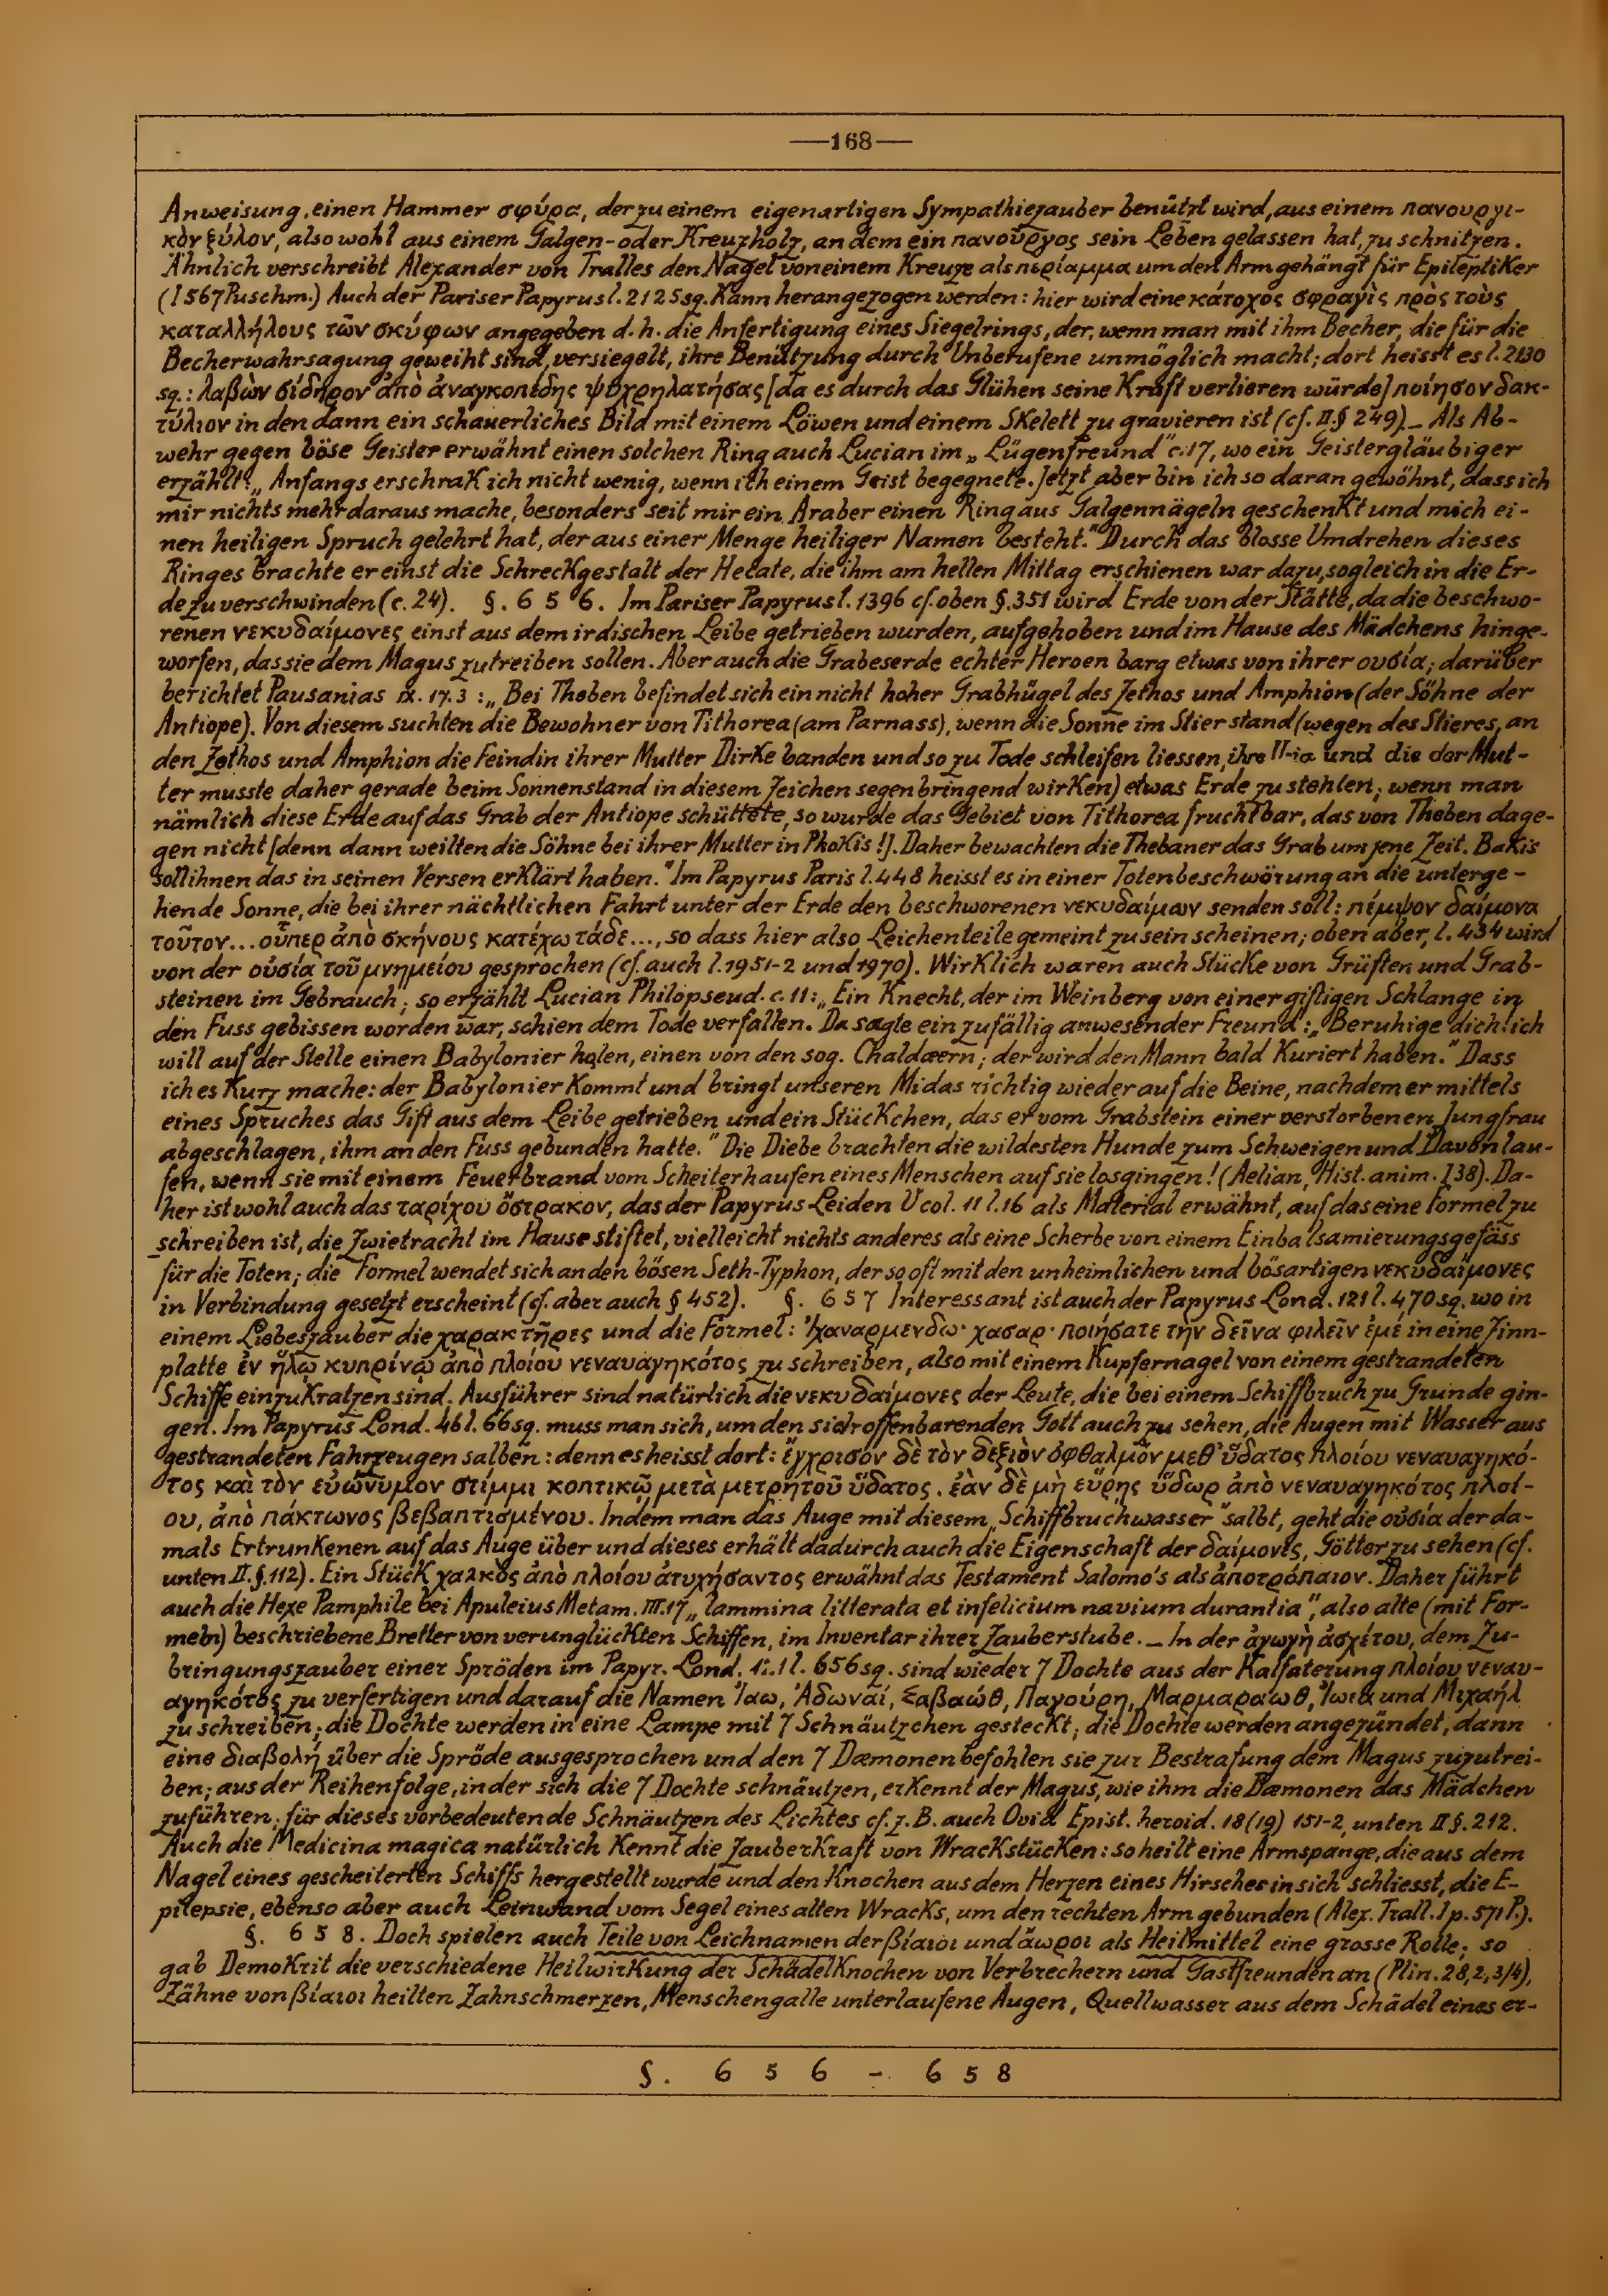 —168—
Anweisung, einen Hammer σφύρα, der zu einem eigenartigen Sympathiezauber benützt wird, aus einem πανουργι-
κὸν ξύλον, also wohl aus einem Galgen- oder Kreuzholz, an dem ein πανοῦργος sein Leben gelassen hat, zu schnitzen.
Ähnlich verschreibt Alexander von Tralles den Nagel von einem Kreuze als περίαμμα um den Arm gehängt für Epileptiker
(I 567 Puschm.) Auch der Pariser Papyrus l. 2125 sq. kann herangezogen werden: hier wird eine κάτοχος σφραγὶς πρὸς τοὺς
καταλλήλους τῶν σκύφων angegeben d. h. die Anfertigung eines Siegelrings, der, wenn man mit ihm Becher, die für die
Becherwahrsagung geweiht sind, versiegelt, ihre Benützung durch Unberufene unmöglich macht; dort heisst es l. 2130
sq.: λαβὼν σίδηρον ἀπὸ ἀναγκοπέδης ψυχρηλατήσας [da es durch das Glühen seine Kraft verlieren würde] ποίησον δακ-
τύλιον in den dann ein schauerliches Bild mit einem Löwen und einem Skelett zu gravieren ist (cf. II. § 249). _ Als Ab-
wehr gegen böse Geister erwähnt einen solchen Ring auch Lucian im „Lügenfreund" c. 17, wo ein Geistergläubiger
erzählt: „Anfangs erschrak ich nicht wenig, wenn ich einem Geist begegnete. Jetzt aber bin ich so daran gewöhnt, dass ich
mir nichts mehr daraus mache, besonders seit mir ein Araber einen Ring aus Galgennägeln geschenkt und mich ei-
nen heiligen Spruch gelehrt hat, der aus einer Menge heiliger Namen besteht." Durch das blosse Umdrehen dieses
Ringes brachte er einst die Schreckgestalt der Hecate, die ihm am hellen Mittag erschienen war dazu, sogleich in die Er-
de zu verschwinden (c. 24). §. 6 5 6. Im Pariser Papyrus l. 1396 cf. oben §. 351 wird Erde von der Stätte, da die beschwo-
renen νεκυδαίμονες einst aus dem irdischen Leibe getrieben wurden, aufgehoben und im Hause des Mädchens hinge-
worfen, das sie dem Magus zutreiben sollen. Aber auch die Grabeserde echter Heroen barg etwas von ihrer ουσία; darüber
berichtet Pausanias IX. 17. 3: „Bei Theben befindet sich ein nicht hoher Grabhügel des Zethos und Amphion (der Söhne der
Antiope). Von diesem suchten die Bewohner von Tithorea (am Parnass), wenn die Sonne im Stier stand (wegen des Stieres, an
den Zethos und Amphion die Feindin ihrer Mutter Dirke banden und so zu Tode schleifen liessen, ihre und die der Mut-
ter musste daher gerade beim Sonnenstand in diesem Zeichen segenbringend wirken) etwas Erde zu stehlen; wenn man
nämlich diese Erde auf das Grab der Antiope schüttete, so wurde das Gebiet von Tithorea fruchtbar, das von Theben dage-
gen nicht [denn dann weilten die Söhne bei ihrer Mutter in Phokis!]. Daher bewachten die Thebaner das Grab um jene Zeit. Bakis
soll ihnen das in seinen Versen erklärt haben." Im Papyrus Paris l. 448 heisst es in einer Totenbeschwörung an die unterge-
hende Sonne, die bei ihrer nächtlichen Fahrt unter der Erde den beschworenen νεκυδαίμων senden soll: πέμψον δαίμονα
τοῦτον... οὗπερ ἀπὸ σκήνους κατέχω τάδε..., so dass hier also Leichenteile gemeint zu sein scheinen; oben aber, l. 434 wird
von der οὐσία τοῦ μνημείου gesprochen (cf. auch l. 1951-2 und 1970). Wirklich waren auch Stücke von Grüften und Grab-
steinen im Gebrauch; so erzählt Lucian Philopseud. c. 11: „Ein Knecht, der im Weinberg von einer giftigen Schlange in
den Fuss gebissen worden war, schien dem Tode verfallen. Da sagte ein zufällig anwesender Freund: „Beruhige dich! ich
will auf der Stelle einen Babylonier holen, einen von den sog. Chaldæern; der wird den Mann bald kuriert haben." Dass
ich es kurz mache: der Babylonier kommt und bringt unseren Midas richtig wieder auf die Beine, nachdem er mittels
eines Spruches das Gift aus dem Leibe getrieben und ein Stückchen, das er vom Grabstein einer verstorbenen Jungfrau
abgeschlagen, ihm an den Fuss gebunden hatte." Die Diebe brachten die wildesten Hunde zum Schweigen und Davonlau-
fen, wenn sie mit einem Feuerbrand vom Scheiterhaufen eines Menschen auf sie losgingen! (Aelian, Hist. anim. I 38). Da-
her ist wohl auch das ταρίχου ὄστρακον, das der Papyrus Leiden V col. 11 l. 16 als Material erwähnt, auf das eine Formel zu
schreiben ist, die Zwietracht im Hause stiftet, vielleicht nichts anderes als eine Scherbe von einem Einbalsamierungsgefäss
für die Toten; die Formel wendet sich an den bösen Seth-Typhon, der so oft mit den unheimlichen und bösartigen νεκυδαίμονες
in Verbindung gesetzt erscheint (cf. aber auch § 452). §. 6 5 7 Interessant ist auch der Papyrus Lond. 121 l. 470 sq. wo in
einem Liebeszauber die χαρακτῆρες und die Formel: Ἰχαναρμενδω· χασαρ· ποιήσατε τὴν δεῖνα φιλεῖν ἐμέ in eine Zinn-
platte ἐν ἥλῳ κυπρίνῳ ἀπὸ πλοίου νεναυαγηκότος zu schreiben, also mit einem Kupfernagel von einem gestrandeten
Schiffe einzukratzen sind. Ausführer sind natürlich die νεκυδαίμονες der Leute, die bei einem Schiffbruch zu Grunde gin-
gen. Im Papyrus Lond. 46 l. 66 sq. muss man sich, um den sich offenbarenden Gott auch zu sehen, die Augen mit Wasser aus
gestrandeten Fahrzeugen salben: denn es heisst dort: ἔγχρισον δὲ τὸν δεξιὸν ὀφθαλμὸν μεθ' ὕδατος πλοίου νεναυαγηκό-
τος καὶ τὸν εὐώνυμον στίμμι κοπτικῷ μετὰ μετρητοῦ ὕδατος. ἐὰν δὲ μὴ εὕρῃς ὕδωρ ἀπὸ νεναυαγηκότος πλοί-
ου, ἀπὸ πάκτωνος βεβαπτισμένου. Indem man das Auge mit diesem „Schiffbruchwasser" salbt, geht die οὐσία der da-
mals Ertrunkenen auf das Auge über und dieses erhält dadurch auch die Eigenschaft der δαίμονες, Götter zu sehen (cf.
unten II. §. 112). Ein Stück χαλκὸς ἀπὸ πλοίου ἀτυχήσαντος erwähnt das Testament Salomo's als ἀποτρόπαιον. Daher führt
auch die Hexe Pamphile bei Apuleius Metam. III. 17 „lammina litterata et infelicium navium durantia", also alte (mit For-
meln) beschriebene Bretter von verunglückten Schiffen, im Inventar ihrer Zauberstube. _ In der ἀγωγὴ ἀσχέτου, dem Zu-
bringungszauber einer Spröden im Papyr. Lond. l. 656 sq. sind wieder 7 Dochte aus der Kalfaterung πλοίου νεναυ-
αγηκότος zu verfertigen und darauf die Namen Ἰαω, Ἀδωναί, Σαβαώθ, Παγούρη, Μαρμαραωθ, Ἰωια und Μιχαήλ
zu schreiben; die Dochte werden in eine Lampe mit 7 Schnäutzchen gesteckt; die Dochte werden angezündet, dann
eine διαβολή über die Spröde ausgesprochen und den 7 Dæmonen befohlen sie zur Bestrafung dem Magus zuzutrei-
ben; aus der Reihenfolge, in der sich die 7 Dochte schnäutzen, erkennt der Magus, wie ihm die Dæmonen das Mädchen
zuführen; für dieses vorbedeutende Schnäutzen des Lichtes cf. z. B. auch Ovid Epist. heroid. 18 (19) 151-2, unten II §. 212.
Auch die Medicina magica natürlich kennt die Zauberkraft von Wrackstücken: so heilt eine Armspange, die aus dem
Nagel eines gescheiterten Schiffs hergestellt wurde und den Knochen aus dem Herzen eines Hirsches in sich schliesst, die E-
pilepsie, ebenso aber auch Leinwand vom Segel eines alten Wracks, um den rechten Arm gebunden (Alex. Trall. I p. 571 P.).
§. 6 5 8. Doch spielen auch Teile von Leichnamen der βίαιοι und ἄωροι als Heilmittel eine grosse Rolle; so
gab Demokrit die verschiedene Heilwirkung der Schädelknochen von Verbrechern und Gastfreunden an (Plin. 28, 2, 3/4),
Zähne von βίαιοι heilten Zahnschmerzen, Menschengalle unterlaufene Augen, Quellwasser aus dem Schädel eines er-
§. 6 5 6 - 6 5 8